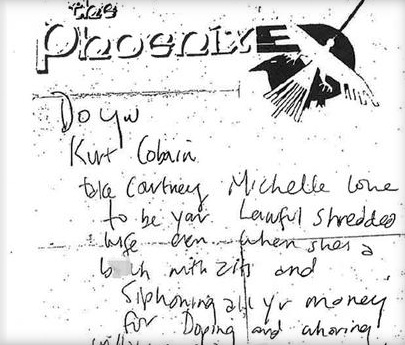 the
Phoenix
Do you
Kurt Cobain
take Courtney Michelle Love
to be your Lawful Shredded
wife even when shes a
b ch with zits and
Siphoning all yr money
for Doping and whoring